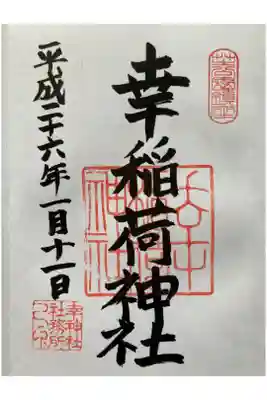 幸稲荷神社
平成二十六年一月十一日
幸神社
社務所
之印